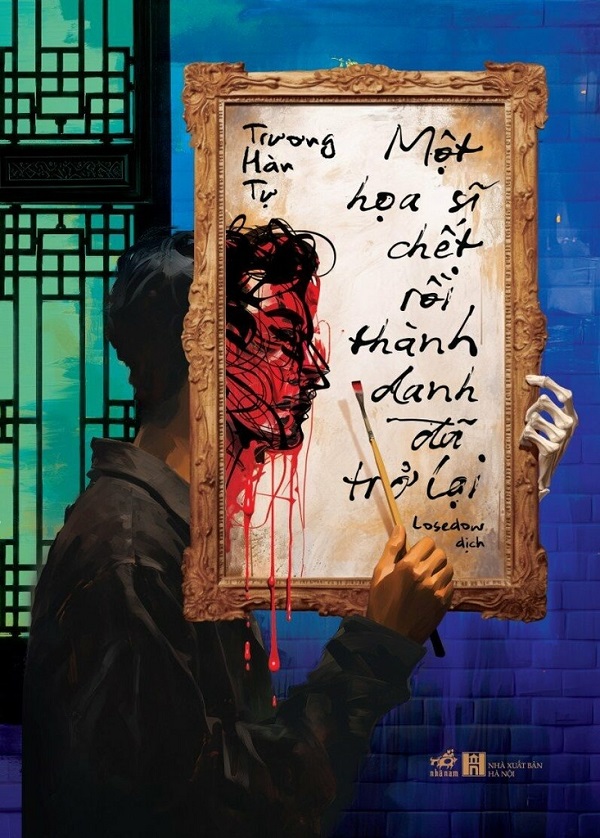 Trương
Hàn
Tự
Một
họa sĩ
chết
rồi
thành
danh
đã
trở lại
Losedow
dịch
nhã nam
NHÀ XUẤT BẢN
HÀ NỘI